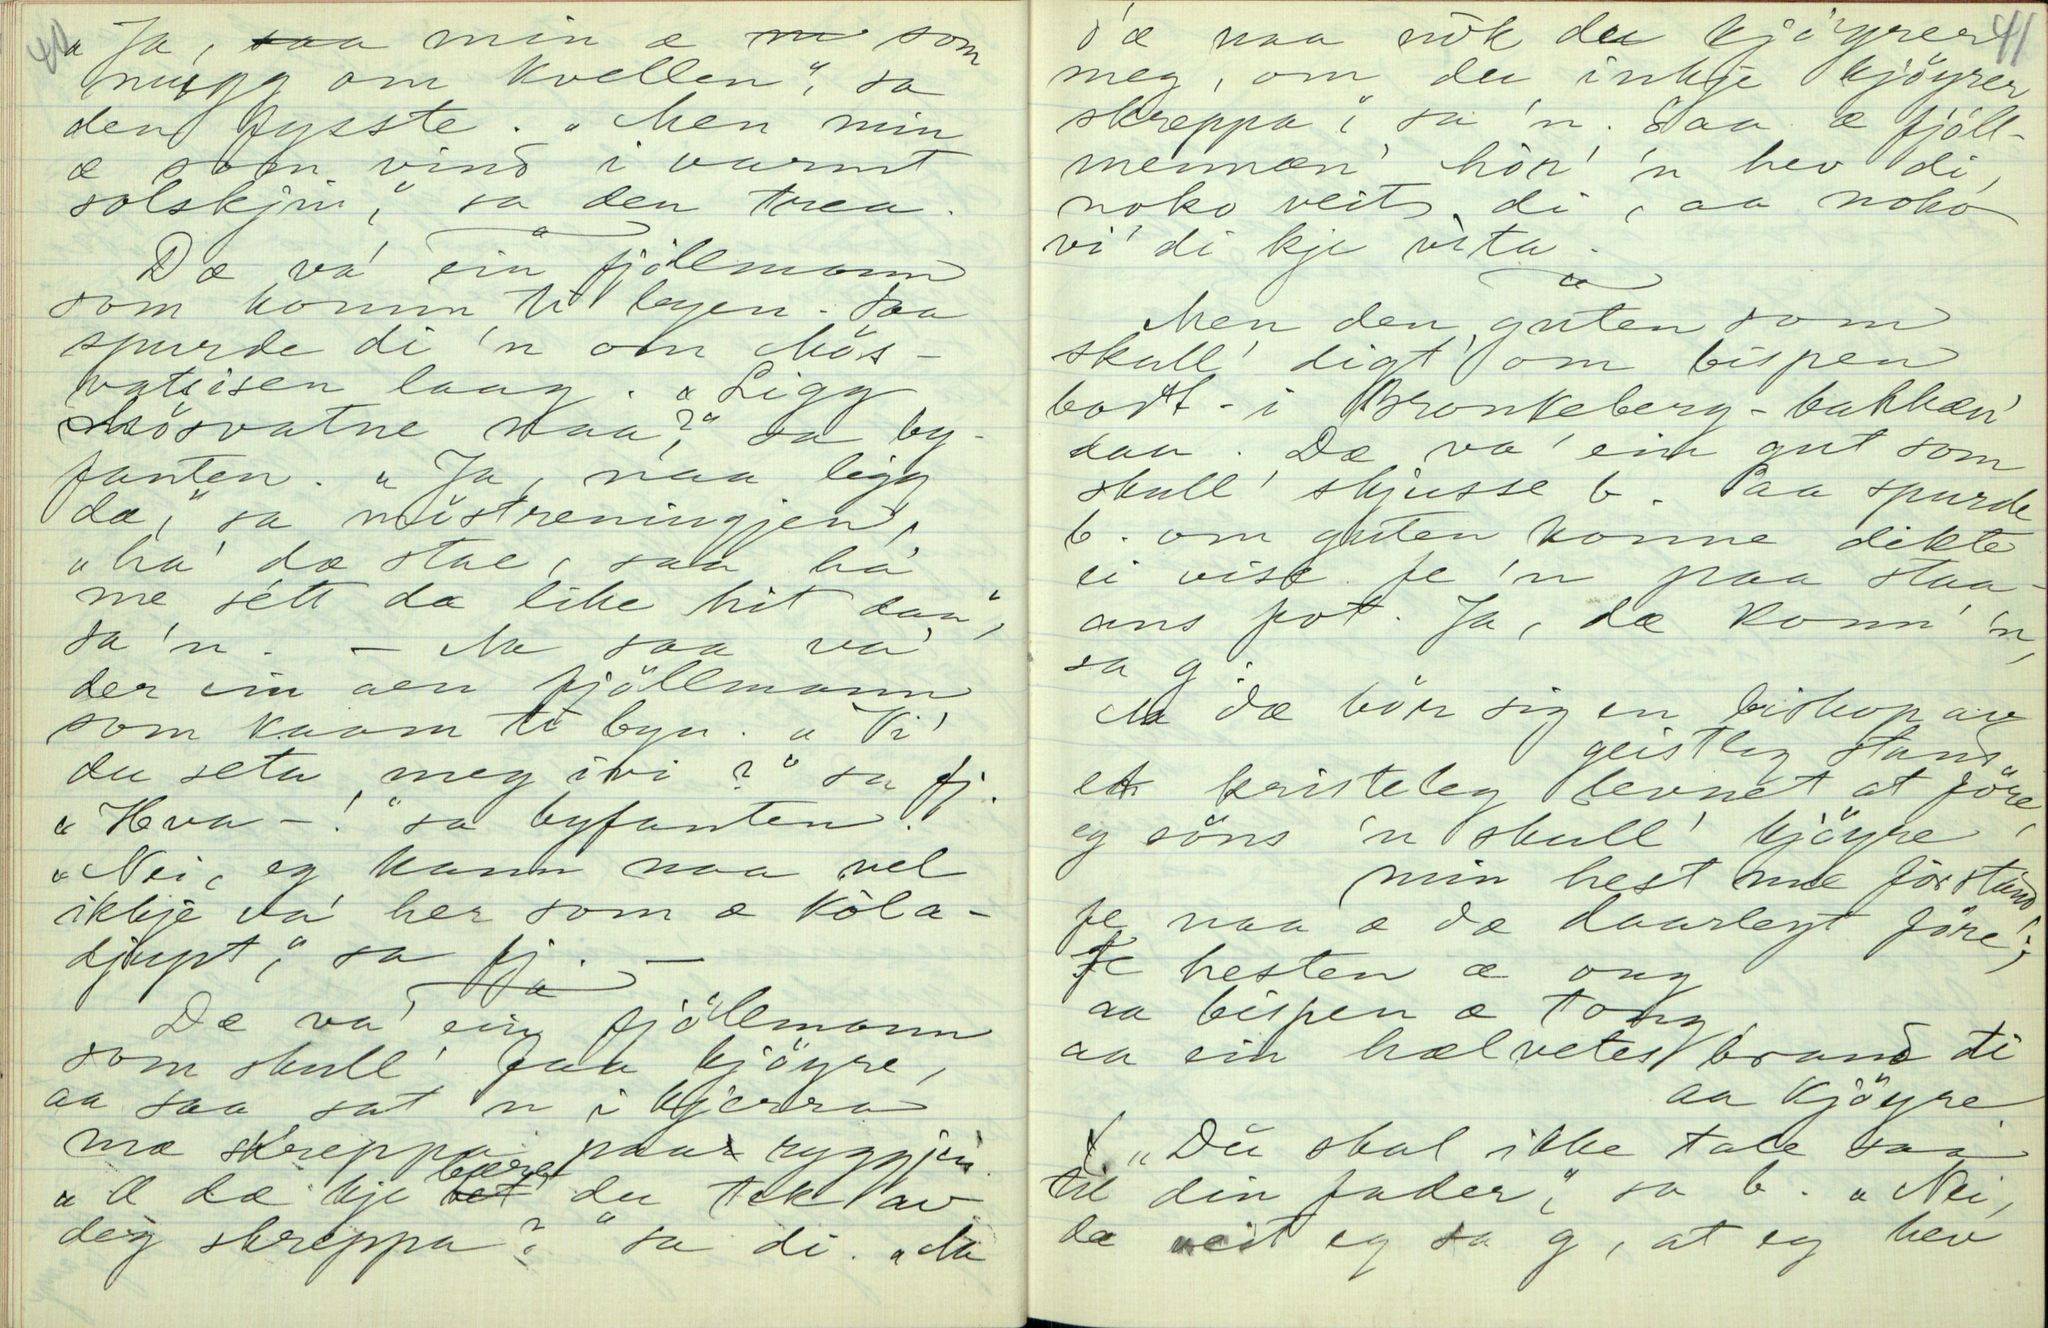 40
„Ja, saa min æ m som
mugg om kvellen", sa
den fysste. „Men min
æ som vind i varmt
solskjin", sa den trea.
Dæ va' ein fjöllmann
som komm ti byen. Saa
spurde di 'n om Mös-
vatsisen laag. „Ligg
Mösvatne naa?" sa by-
fanten. „Ja, naa ligg
dæ," sa
„ha' dæ stae, saa ha'
me sétt dæ like hit daa",
sa 'n. — Ma saa va'
der ein aen fjöllmann
som kaam ti byn. „Vi'
du seta meg ivi?" sa fj.
„Hva —!" sa byfanten.
„Nei, eg kann naa vel
ikkje va' her som æ kola-
djupt," sa fj. —
Dæ va' ein fjöllmann
som skull' faa kjöyre,
aa saa sat 'n i kjerra
mæ skreppa paa ryggjen.
„Æ dæ kje bet bære du tek av
deg skreppa?" sa di. „Ma
41
d'æ naa nòk du kjöyrer
meg, om du inkje kjöyrer
skreppa", sa 'n. Saa æ fjöll-
mennæn' hör' 'n hev di,
noko veit di, aa noko
vi' di kje vita.
Men den guten som
skull' digt' om bispen
bort i Bronkeberg-bakkæn'
daa. Dæ va' ein gut som
skull' skjusse b. Saa spurde
b. om guten konne dikte
ei vise fe 'n paa staa-
ans fot. Ja, dæ konn' 'n,
sa g.
Ma dæ bör sig en biskop av
geistleg stand
et kristeleg levnet at före,
eg söns 'n skull' kjöyre
min hest mæ forstand
fe naa æ dæ daarlegt före;
fe hesten æ ong
aa bispen æ tong
aa ein hælvetes brand ti
aa kjöyre
„Du skal ikke tale saa
til din fader," sa b. „Nei,
dæ veit eg sa g, at eg hev